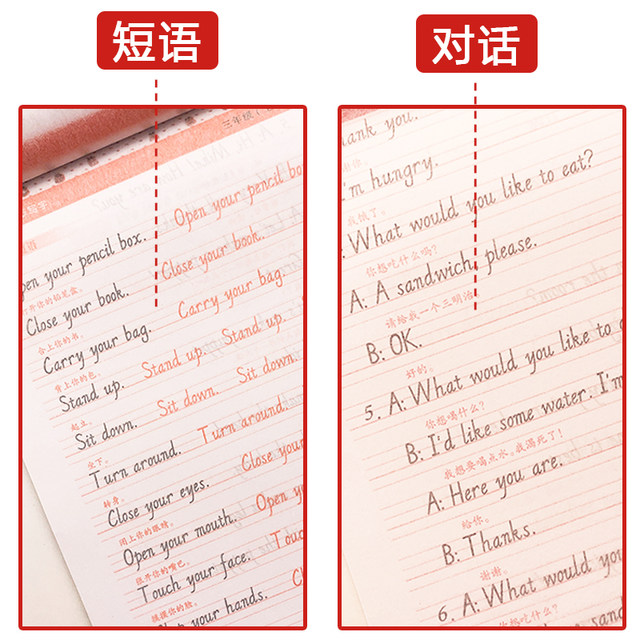 短语
对话
三年级
Open your pencil box. Open your pencil
打开你的铅笔盒。
Close your book. Close your book.
合上你的书。
Carry your bag. Carry your bag.
背上你的包。
Stand up. Stand up. Stand up.
起立。
Sit down. Sit down. Sit down.
坐下。
Turn around. Turn around.
转身。
Close your eyes. Close your
闭上你的眼睛。
Open your mouth. Open
张开你的嘴巴。
Touch your face.
摸摸你的脸。
your hands.
you.
I'm hungry.
我饿了。
What would you like to eat?
你想吃什么吗?
A: A sandwich, please.
请给我一个三明治。
B: OK.
好的。
5. A: What would you like to
你想喝什么?
B: I'd like some water. I'm
我想要喝点水。我渴死了!
A: Here you are.
给你。
B: Thanks.
谢谢。
6. A: What would you
你想吃什么?